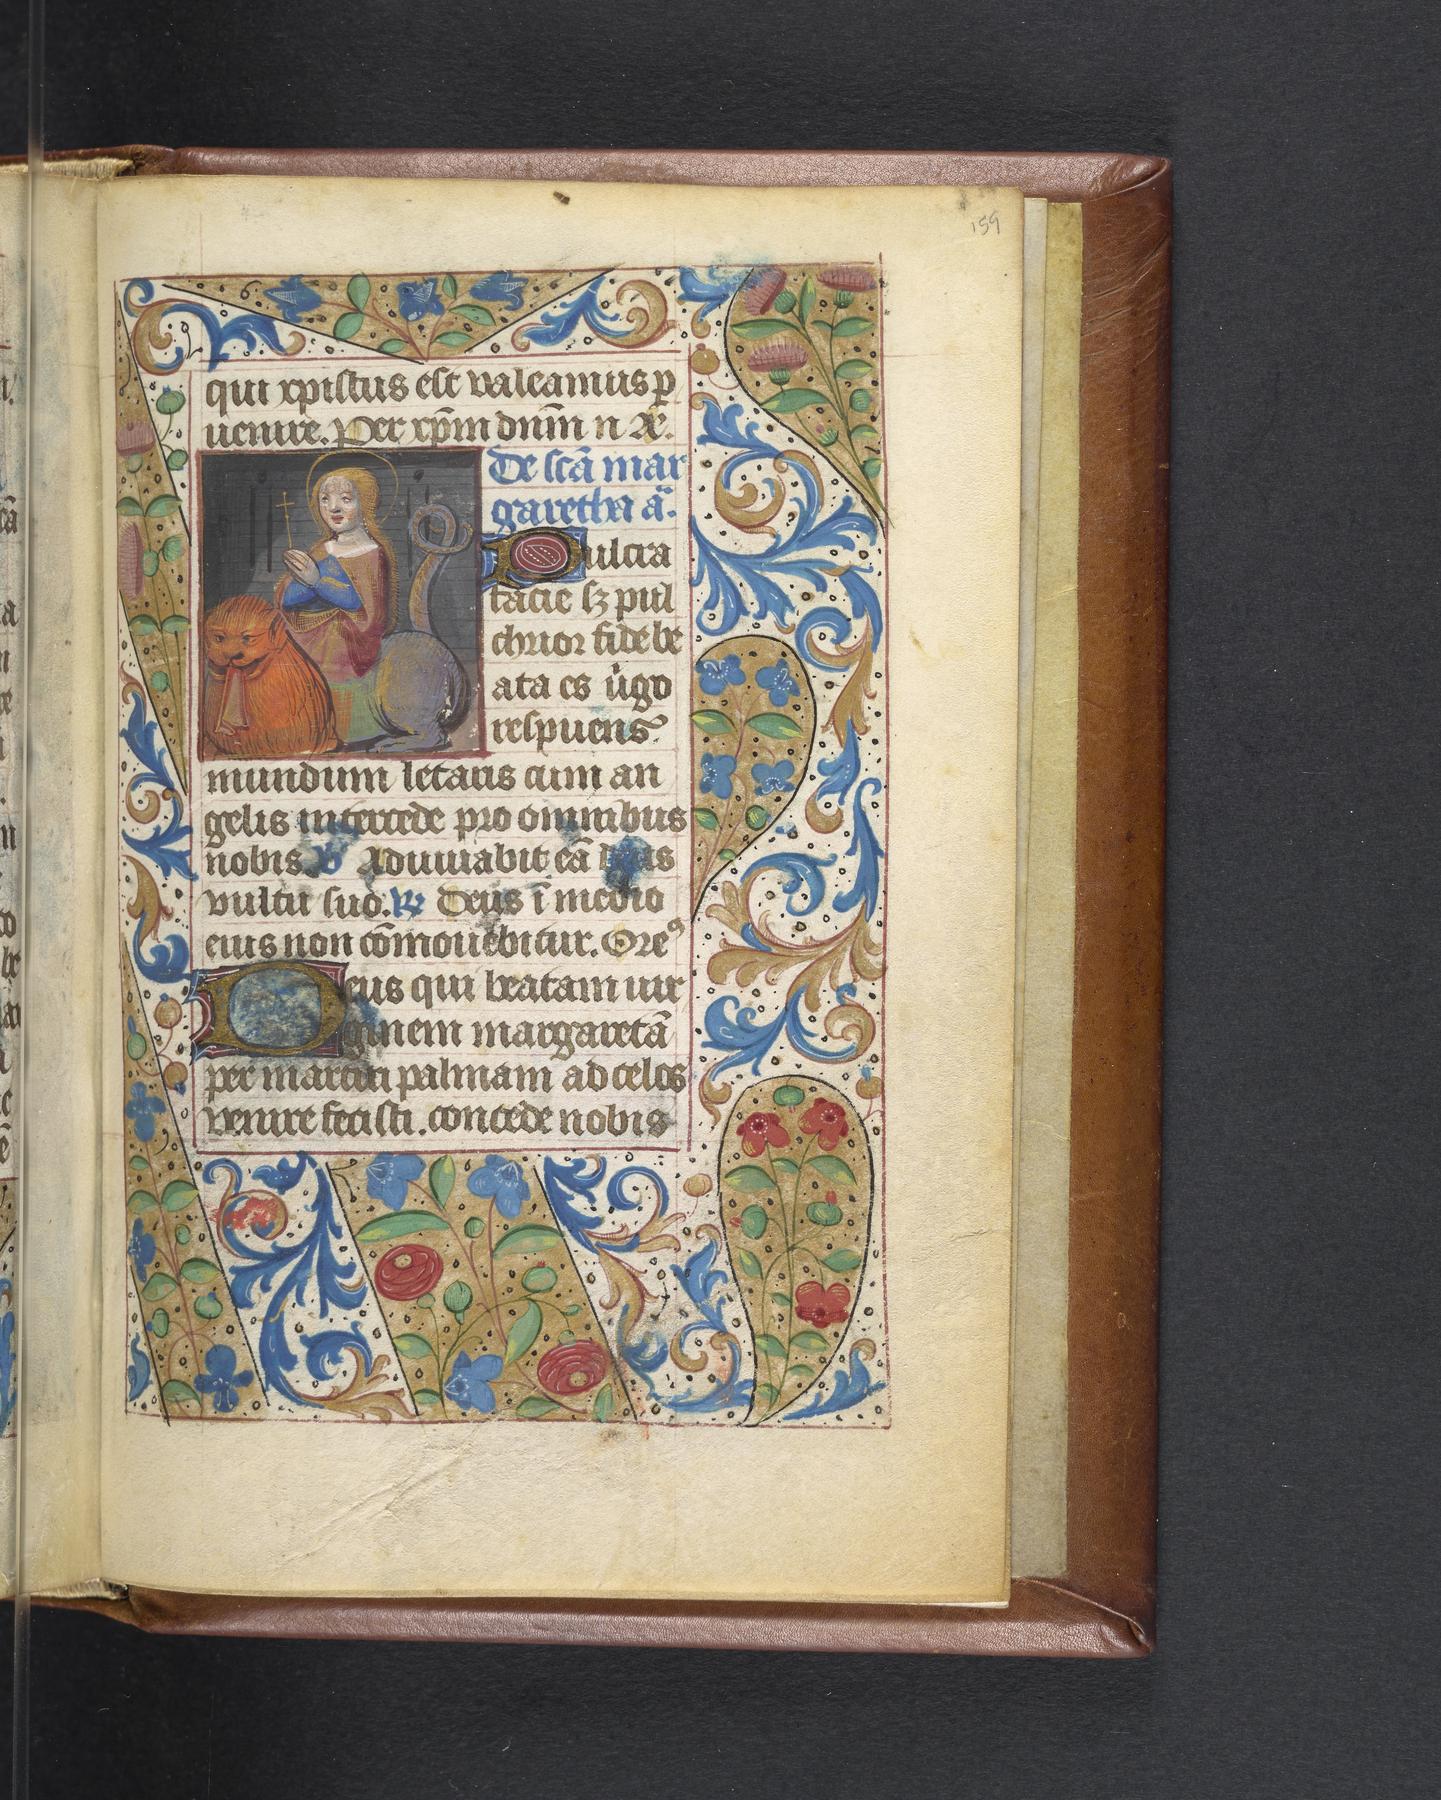 159
qui xpistus est valeamus p̲
uenire. Per xp̄m dnm̄ n̄ Ā.
De scā mar
garetha ā.
Pulcra
facie sꝫ pul
chrior fide be
ata es u̇go
respuens
mundum letaris cum an
gelis intercede pro omnibus
nobis. V Adiuuabit eā deus
vultu suo. R Deus ī medio
eius non cōmouebitur. Oreꝰ
Deus qui beatam uir
ginem margaretā
per martiri palmam ad celos
venire fecisti. concede nobis